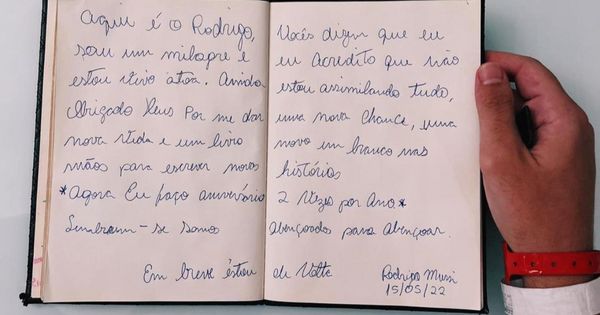 Aqui é o Rodrigo, Vocês dizem que eu
sou um milagre e eu Acredito que não
estou vivo atoa. Ainda estou assimilando tudo,
Obrigado Deus Por me dar uma nova Chance, uma
nova vida e um livro novo em branco nas
mãos para escrever novas histórias
*Agora Eu faço aniversário 2 vezes por Ano.*
Lembrem-se somos Abençoados para Abençoar.
Em breve estou de Volta
Rodrigo Mussi
15/05/22